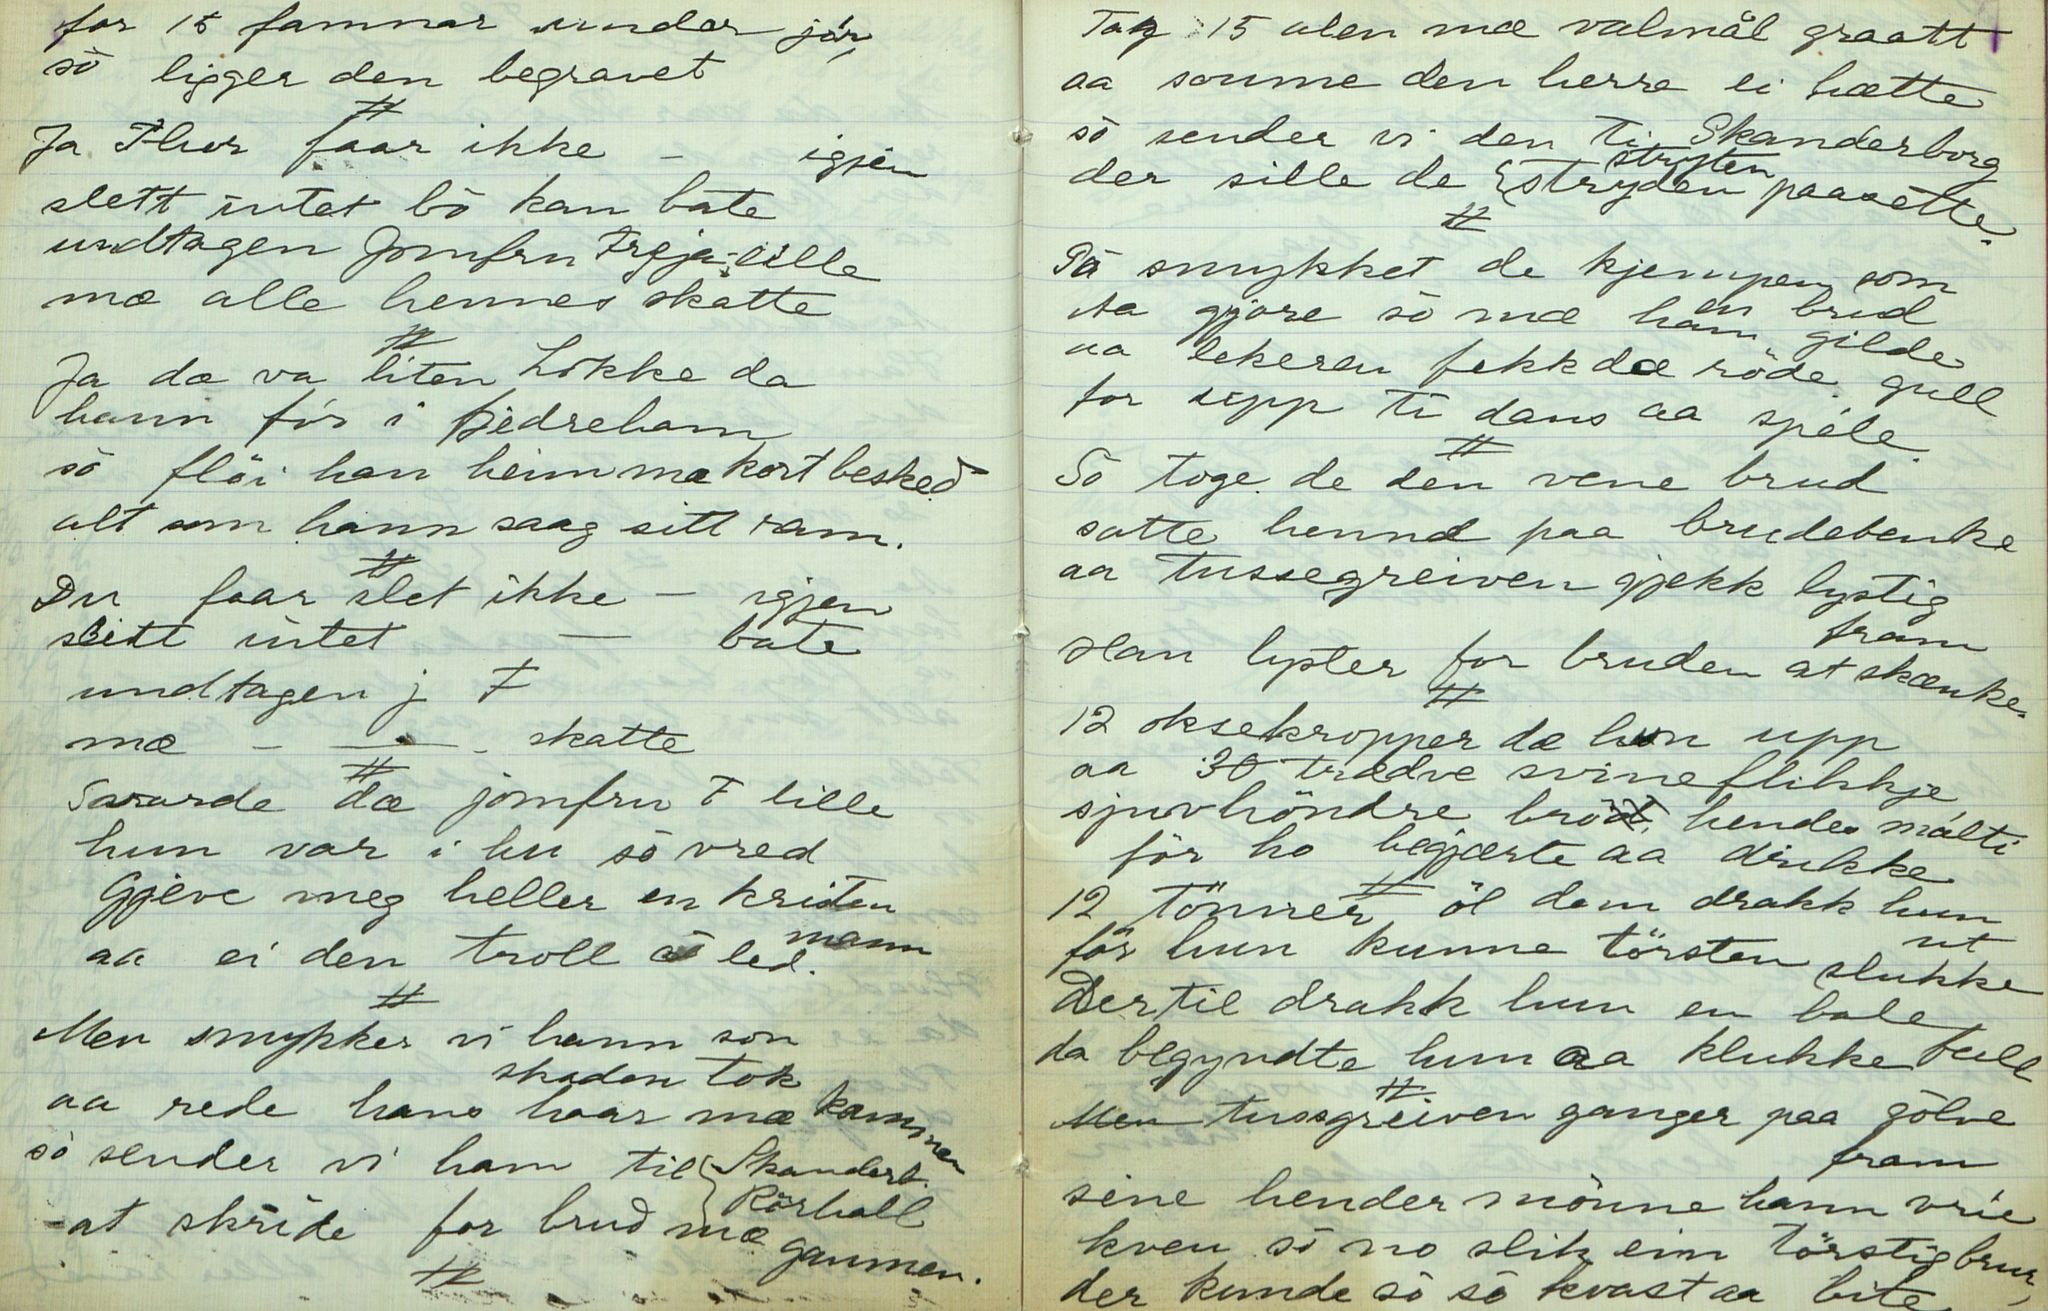 for 15 famnar under jór,
sò ligger den begravet
#
Ja Thor faar ikke — igjen
slett intet bò kan bate
undtagen Jomfru Frøja lille
mæ alle hennes skatte
#
Ja dæ va liten Lokke da
hann fór i fjedreham
sò flöi han heim mæ kort besked
alt som hann saag sitt ram.
#
Du faar slet ikke — igjen
slitt intet — bate
undtagen j F
mæ — — — skatte
#
Svarde dæ jomfru F lille
hun var i hu sò vred
Gjeve meg heller en kristen
mann
aa ei den troll sò led.
#
Men smykker vi hann son
skaden tok
aa rede hans haar mæ kammen
sò sender vi ham til { Skanderb.
Rörhall
-at skride for brud mæ gaumen.
#
Tag 15 alen mæ valmål graatt
aa soume den herre ei hætte
sò sender vi den ti Skanderborg
strÿten
der sille de { stryden paasette.
#
Så smykket de kjempen som
en brud
Aa gjore sò mæ ham gilde
aa lekeren fekk dæ röde gull
for upp ti dans aa spéle.
#
Sò toge de den vene brud
satte hennd paa brudebenke
aa tussegreiven gjekk lystig
fram
Han lyster for bruden at skænke.
#
12 oksekropper dæ hun upp
aa 30 trædve svineflikkje
sjuvhöndre bröd, hendes målti
för ho begjærte aa drikke
#
12 tönner öl dem drakk hun
ut
för hun kunne törsten slukke
Dertil drakk hun en bale
full
da begyndte hun aa klukke
#
Men tussgreiven ganger paa gölve
fram
sine hender mònne hann vrie
kven sò no slik ein törstig brur,
der kunde sò sò kvast aa bite